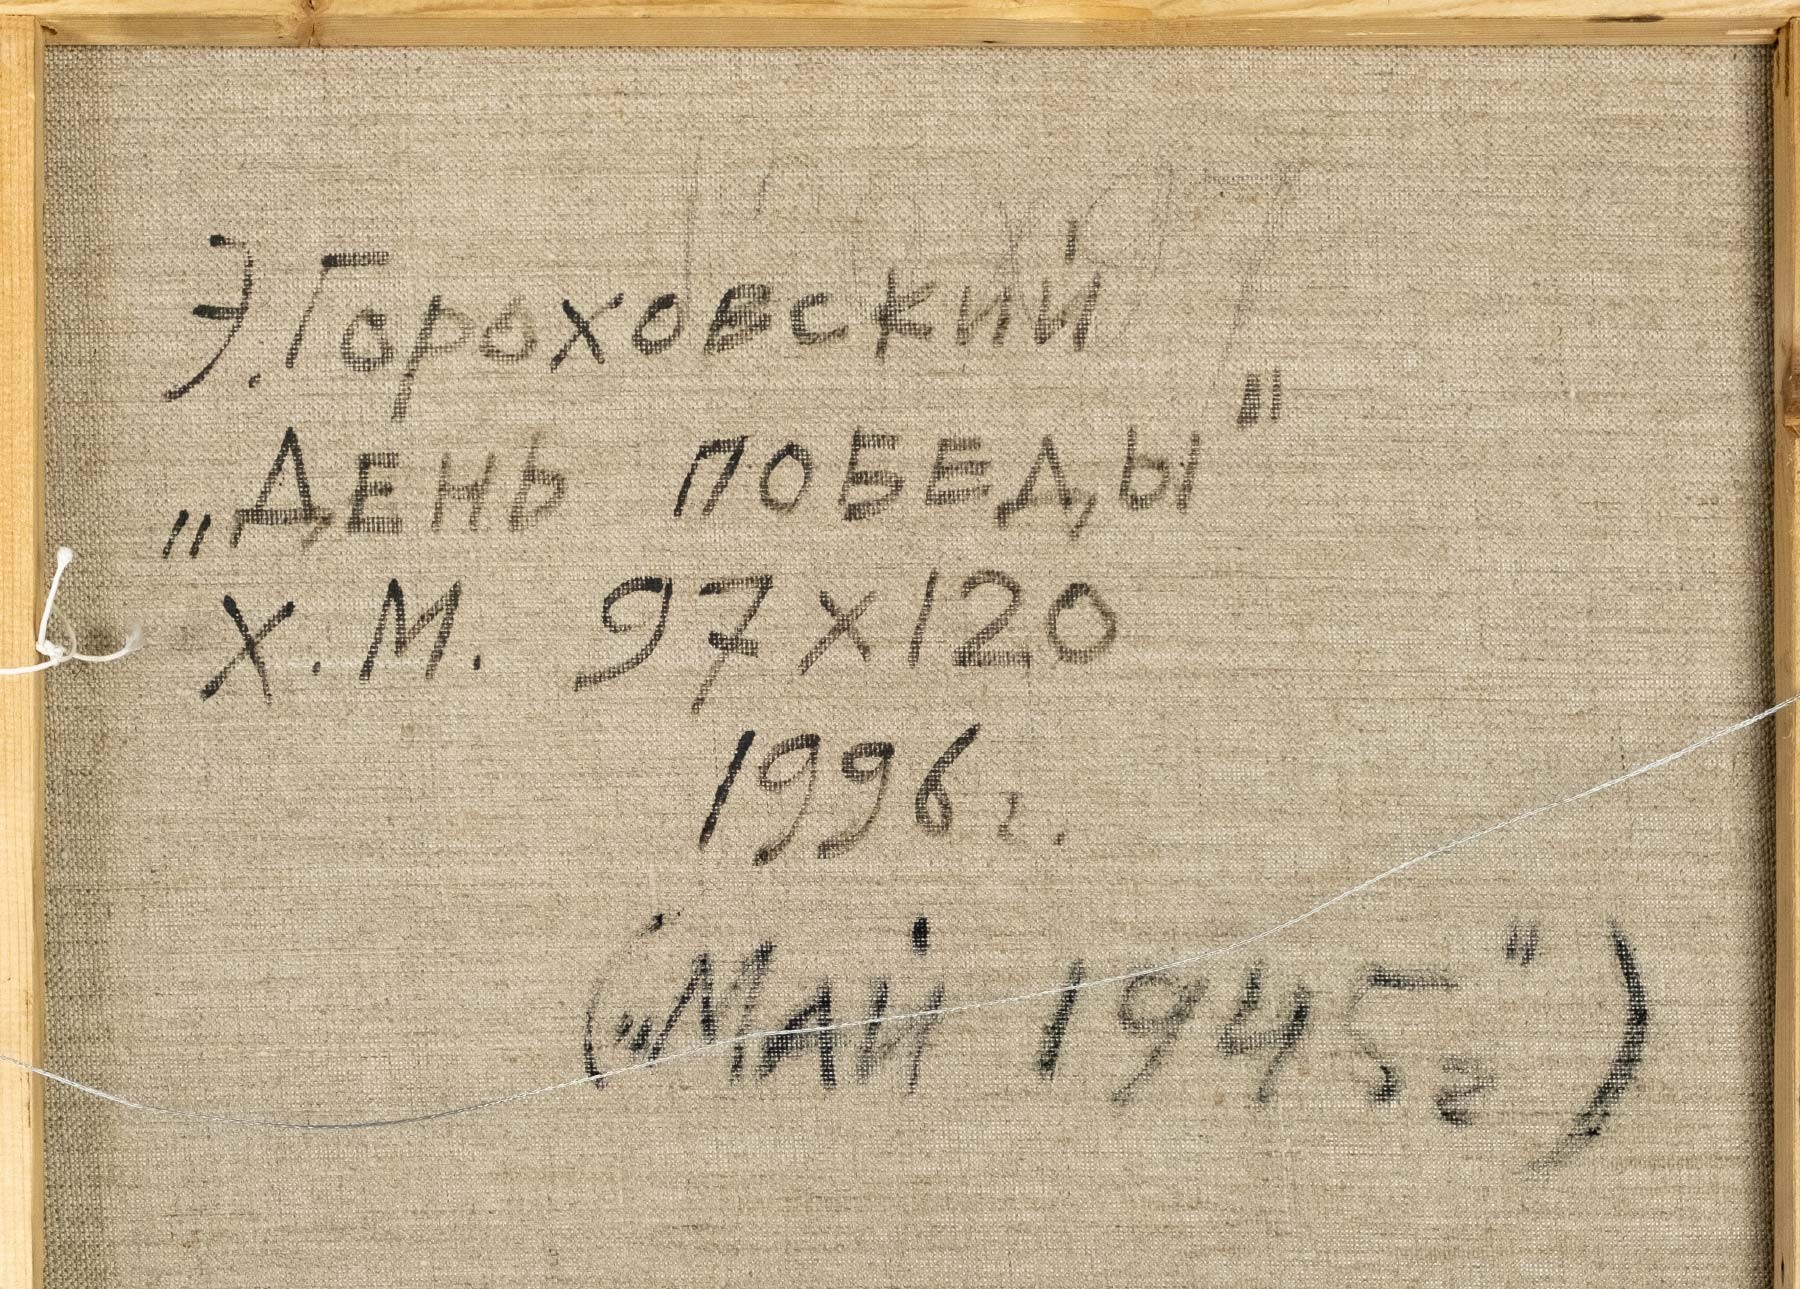 Э. Гороховский
„День победы"
Х. М. 97 х 120
1996 г.
(„Май 1945 г")